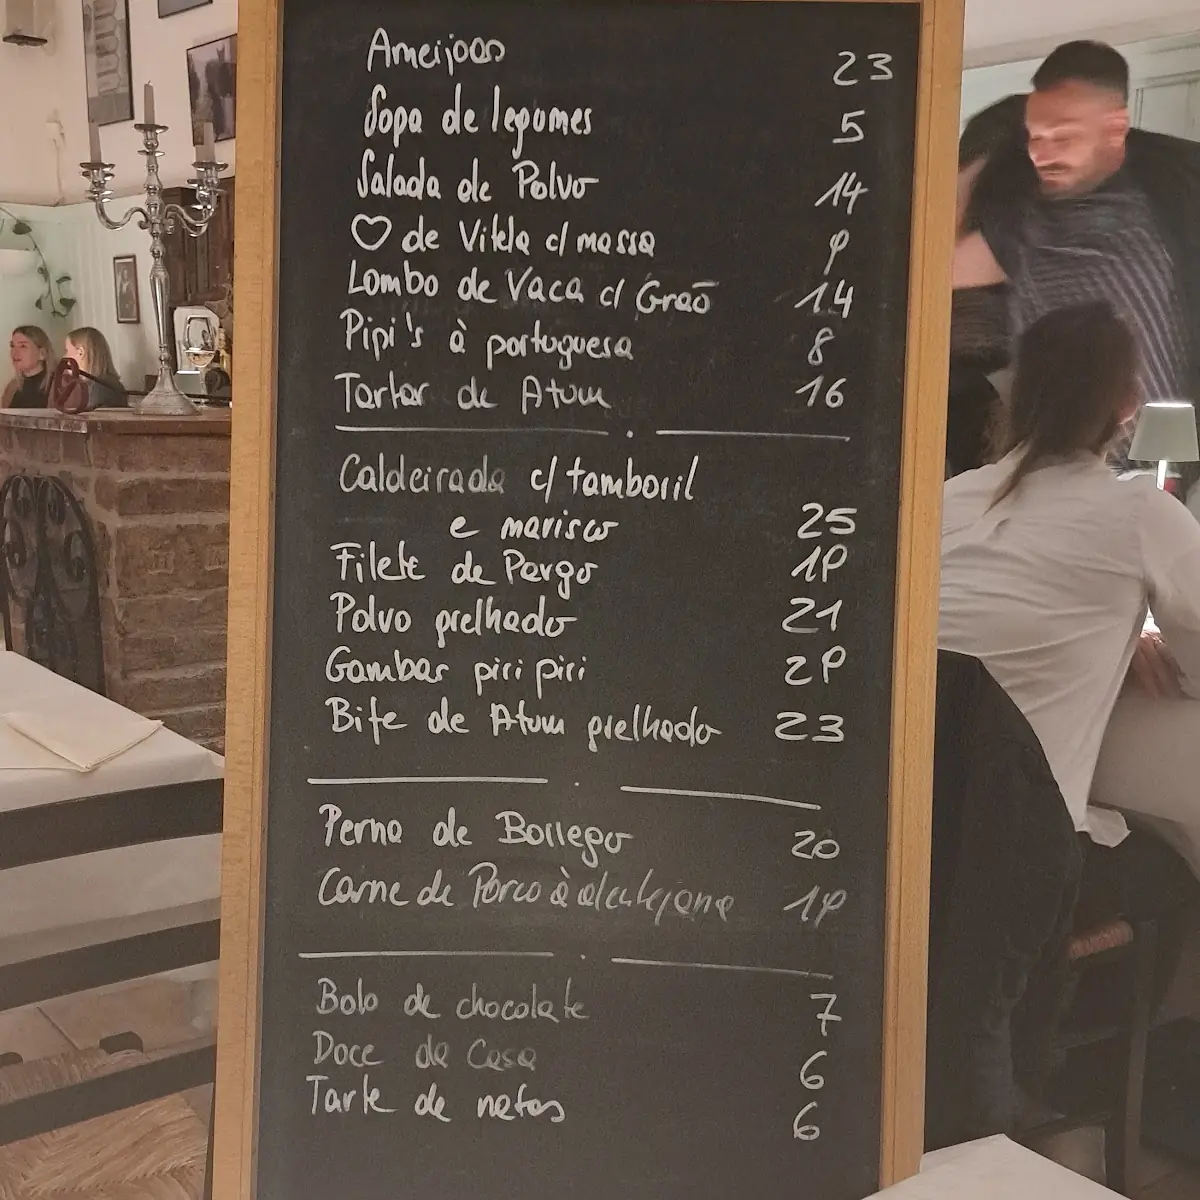 Ameijoas 23
Sopa de legumes 5
Salada de Polvo 14
♡ de Vitela c/ massa 9
Lombo de Vaca c/ Graõ 14
Pipi's à portuguesa 8
Tartar de Atum 16
Caldeirada c/ tamboril
e marisco 25
Filete de Pargo 19
Polvo grelhado 21
Gambas piri piri 29
Bife de Atum grelhado 23
Perna de Borrego 20
Carne de Porco à alentejana 19
Bolo de chocolate 7
Doce da Casa 6
Tarte de natas 6